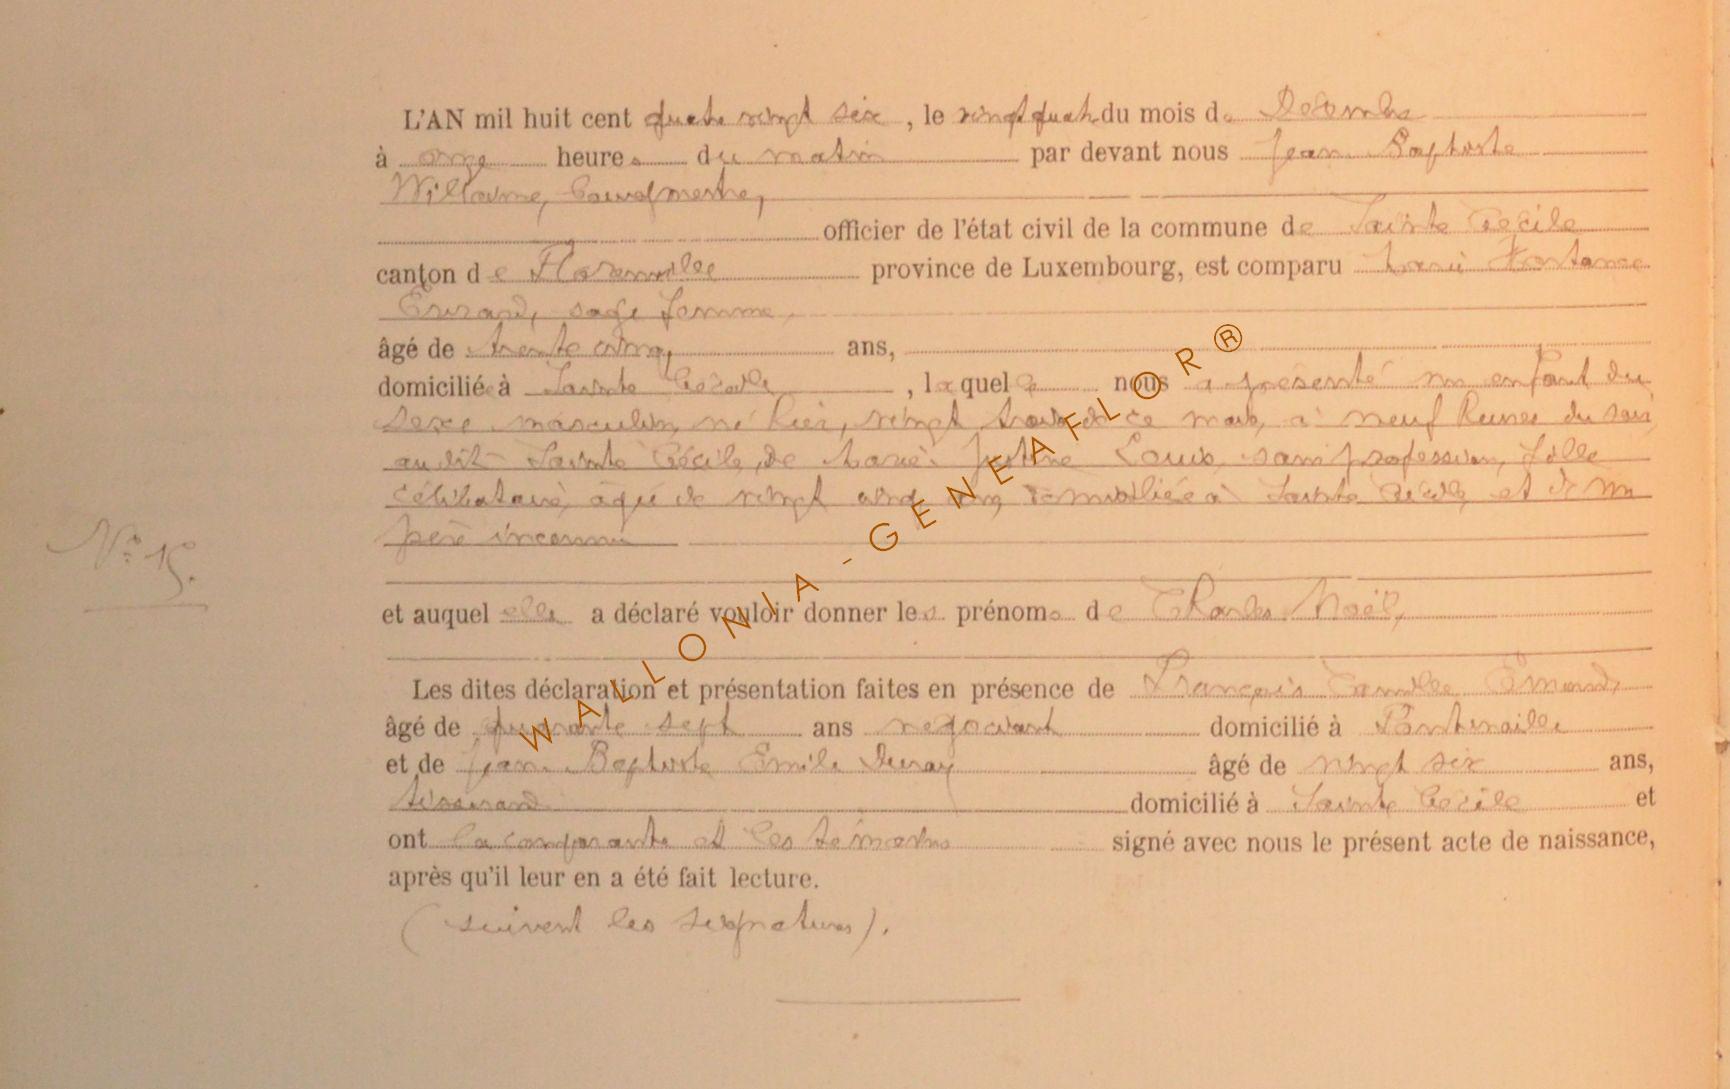 L'AN mil huit cent quatre vingt six, le vingt quatre du mois de Décembre
à onze heures du matin par devant nous Jean Baptiste
Willaime, bourgmestre,
officier de l'état civil de la commune de Sainte Cécile
canton de Florenville province de Luxembourg, est comparu Marie
sage femme,
âgé de trente cinq, ans,
domiciliée à Sainte Cécile, laquelle nous a présenté un enfant du
sexe masculin, né hier, vingt trois de ce mois, à neuf heures du soir,
au dit Sainte Cécile, de Marie Justine Louis, sans profession, fille
célibataire, âgée de vingt cinq ans, domiciliée à Sainte Cécile, et d'un
père inconnu
N° 15.
et auquel elle a déclaré vouloir donner les prénoms de Charles Noël,
Les dites déclaration et présentation faites en présence de François Camille Emond,
âgé de quarante sept ans négociant domicilié à Fontenoille
et de Jean Baptiste Emile Duray âgé de vingt six ans,
tisserand domicilié à Sainte Cécile et
ont la comparante et les témoins signé avec nous le présent acte de naissance,
après qu'il leur en a été fait lecture.
(suivent les signatures).
WALLONIA-GENEAFLOR®